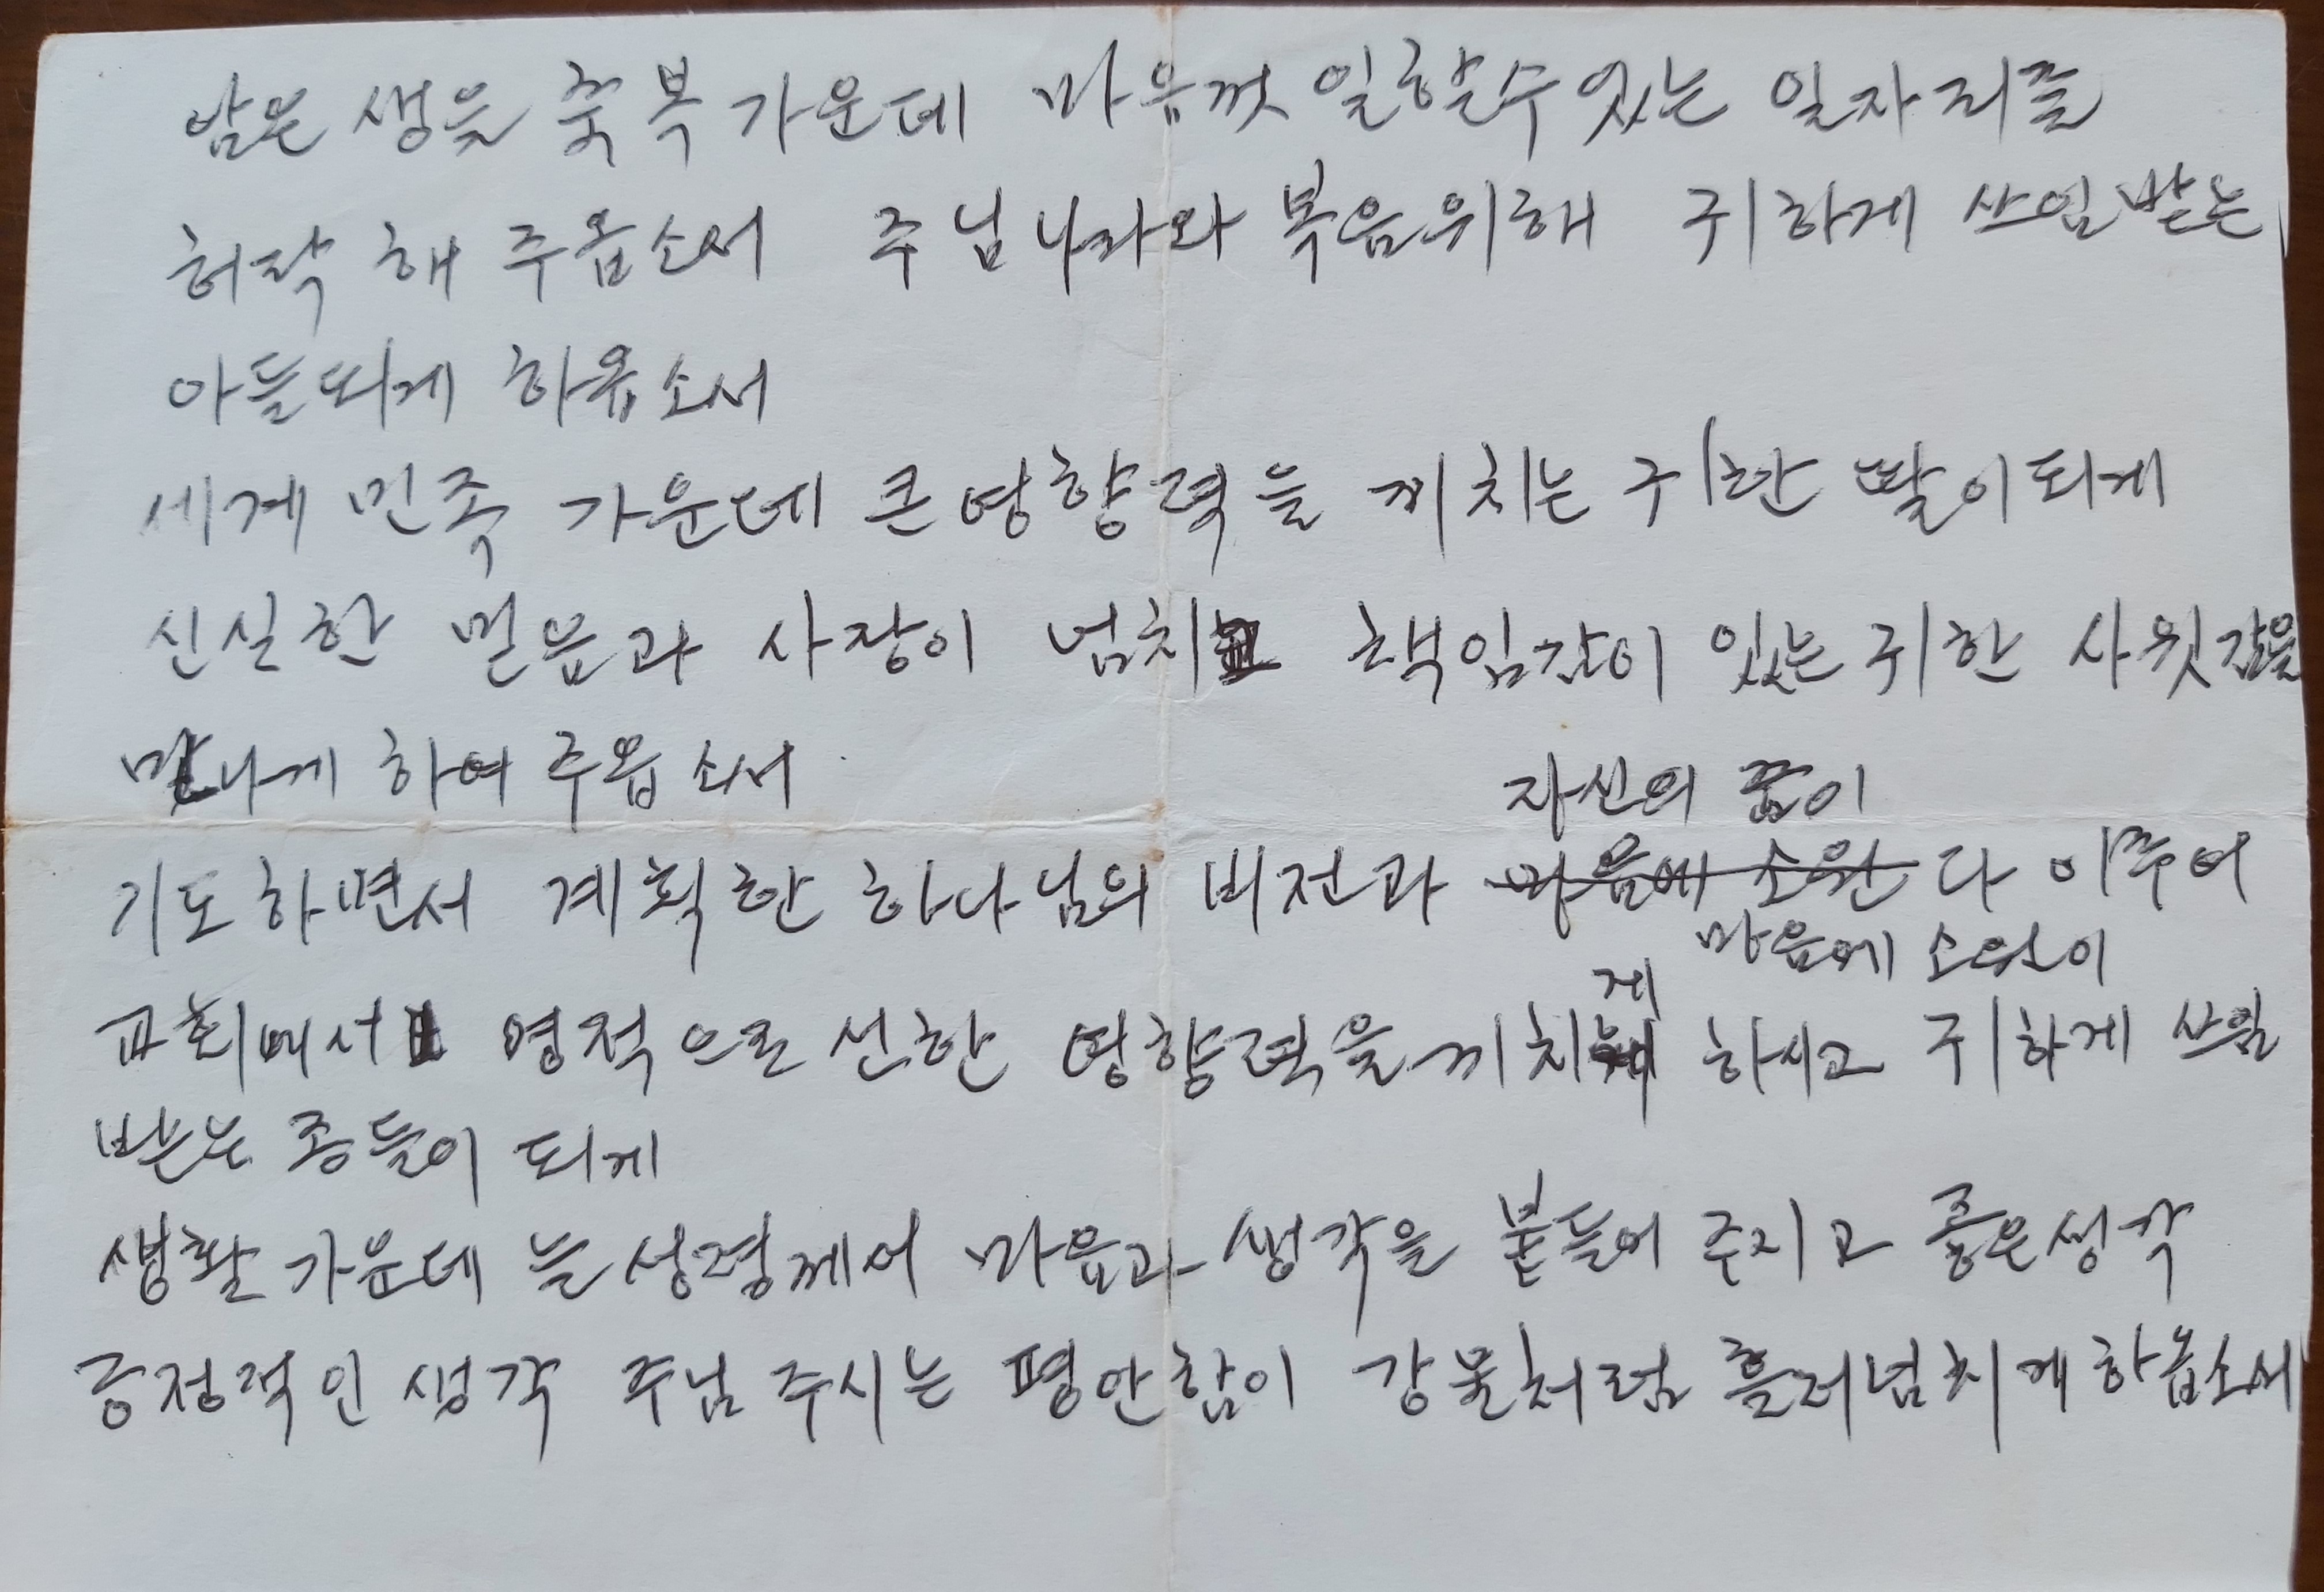 남은 생을 축복 가운데 마음껏 일할수 있는 일자리를
허락 해 주옵소서 주님나라와 복음위해 귀하게 쓰임받는
아들되게 하옵소서
세계 민족 가운데 큰영향력을 끼치는 귀한 딸이되게
신실한 믿음과 사랑이 넘치고 책임감이 있는 귀한 사윗감을
만나게 하여 주옵소서
자신의 꿈이
기도하면서 계획한 하나님의 비전과 마음에 소원 다 이루어
마음에 소원이
게
교회에서 영적으로 선한 영향력을 끼치 하시고 귀하게 쓰임
받는 종들이 되게
생활 가운데 늘 성령께서 마음과 생각을 붙들어 주시고 좋은생각
긍정적인 생각 주님 주시는 평안함이 강물처럼 흘러넘치게 하옵소서